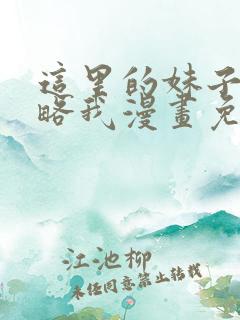 這里的妹子
略我漫畫免
江池柳
未经同意禁止转载